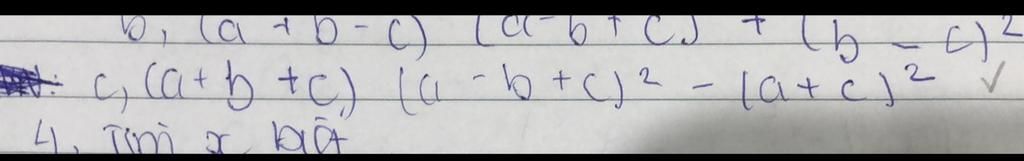 b, (a + b - c) (a - b + c) + (b - c)²
c, (a + b + c) (a - b + c)² - (a + c)² ✓
4. Tìm x biết